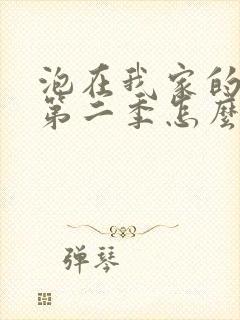 泡在我家的
第二季怎麼
弹琴